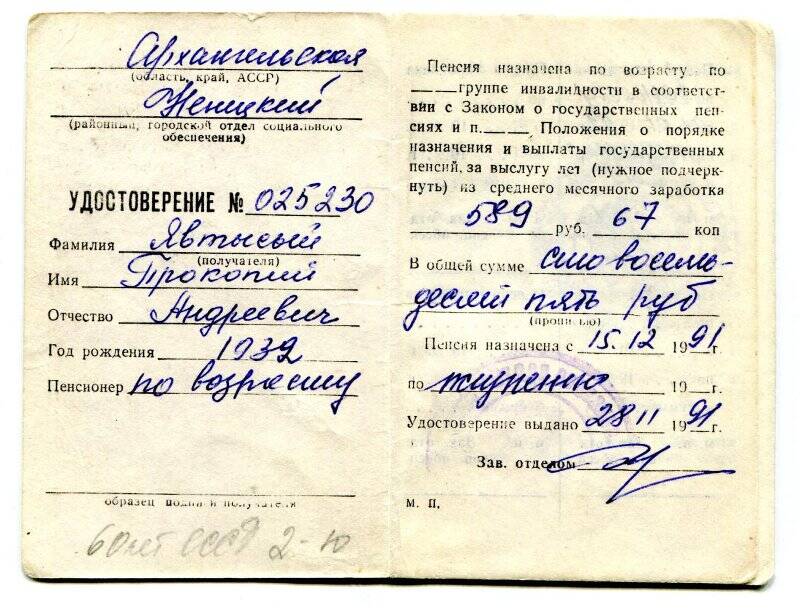 Архангельская
(область, край, АССР)
Ненецкий
(районный, городской отдел социального
обеспечения)
УДОСТОВЕРЕНИЕ № 025230
Фамилия Явтысый
(получателя)
Имя Прокопий
Отчество Андреевич
Год рождения 1932
Пенсионер по возрасту
образец подписи получателя
60 лет СССР 2-
Пенсия назначена по возрасту по
группе инвалидности в соответст-
вии с Законом о государственных пен-
сиях и п. Положения о порядке
назначения и выплаты государственных
пенсий, за выслугу лет (нужное подчерк-
нуть) из среднего месячного заработка
589 руб. 67 коп
В общей сумме сто восемь-
десят пять руб
(прописью)
Пенсия назначена с 15.12 1991г.
по 19 г.
Удостоверение выдано 28 11 1991г.
Зав. отделом
М. П.